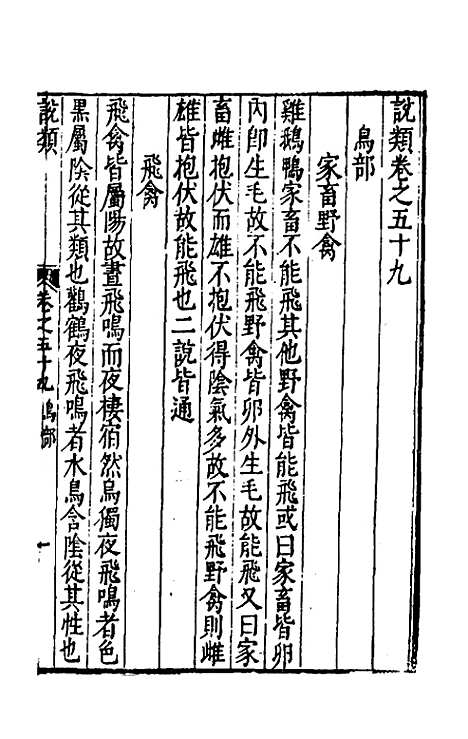 說類卷之五十九
鳥部
家畜野禽
雞鵝鴨家畜不能飛其他野禽皆能飛或曰家畜皆卵
內卽生毛故不能飛野禽皆卵外生毛故能飛又曰家
畜雌抱伏而雄不抱伏得陰氣多故不能飛野禽則雌
雄皆抱伏故能飛也二說皆通
飛禽
飛禽皆屬陽故晝飛鳴而夜棲宿然烏獨夜飛鳴者色
黑屬陰從其類也鸛鶴夜飛鳴者水鳥含陰從其性也
說類
卷之五十九 鳥部
一